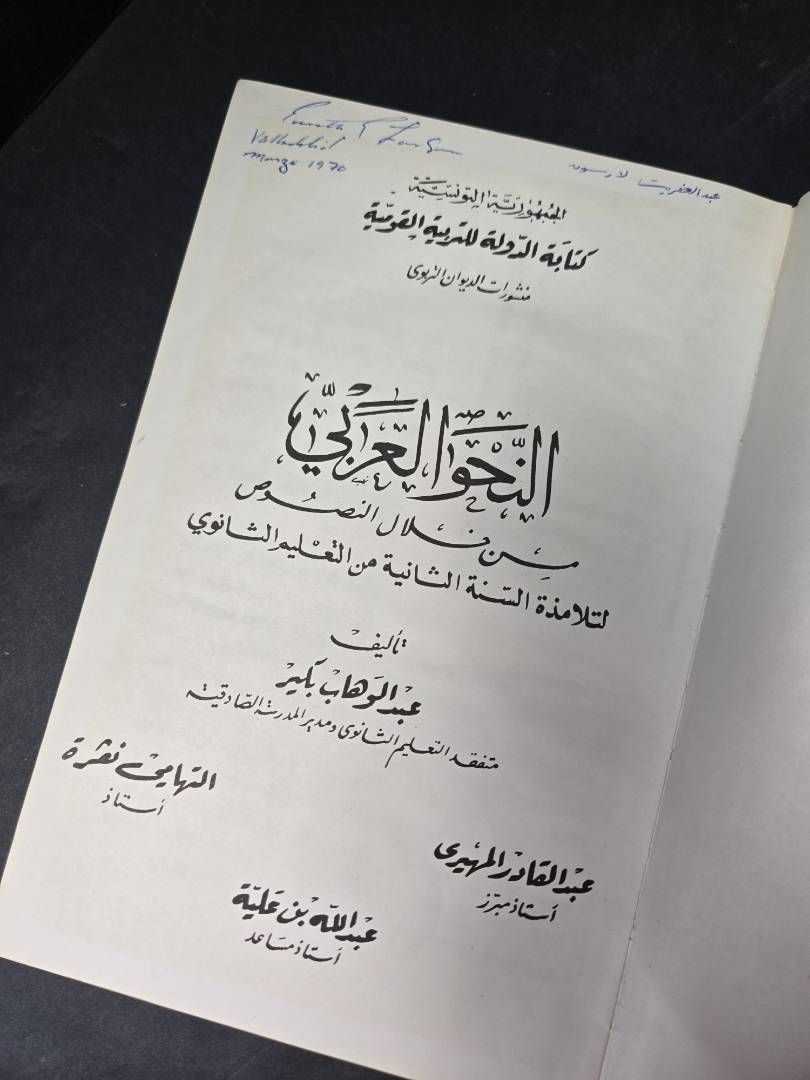 Valladolid
Marzo 1970
لارسون
الجمهورية التونسية
كتابة الدولة للتربية القومية
منشورات الديوان التربوي
النّحو العَربيّ
من خلال النصوص
لتلامذة السّنة الثانية من التعليم الثانوي
تأليف
عبد الوهاب بكير
متفقد التعليم الثانوي ومدير المدرسة الصّادقية
التهامي نقرة
أستاذ
عبد القادر المهيري
أستاذ مبرّز
عبد اللّه بن عليّة
أستاذ مساعد